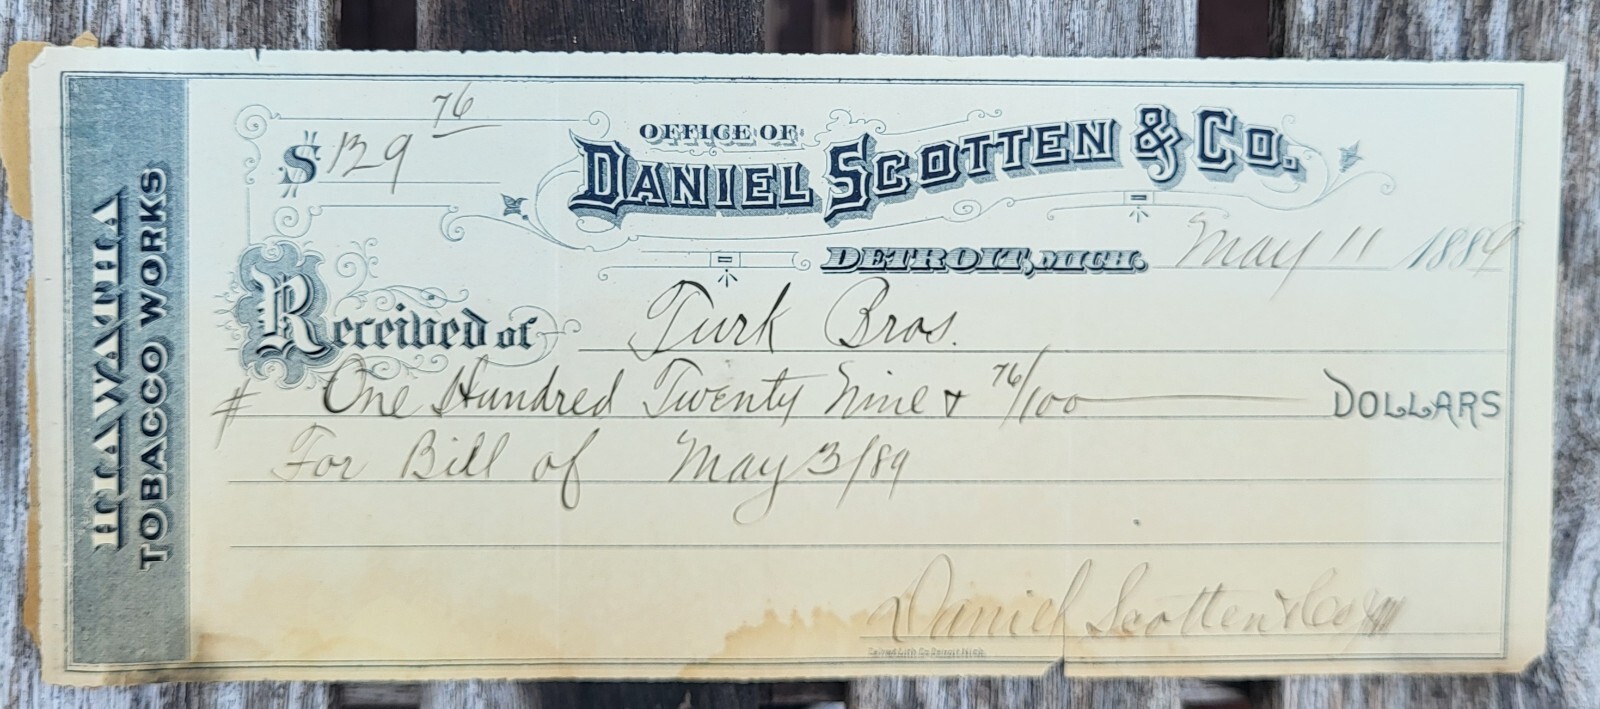 HIAWATHA
TOBACCO WORKS
$ 129 76
OFFICE OF
DANIEL SCOTTEN & CO.
DETROIT, MICH. May 11 1889
Received of Turk Bros.
# One Hundred Twenty Nine & 76/100 DOLLARS
For Bill of May 3/89
Daniel Scotten & Co
Calvert Lith. Co. Detroit Mich.